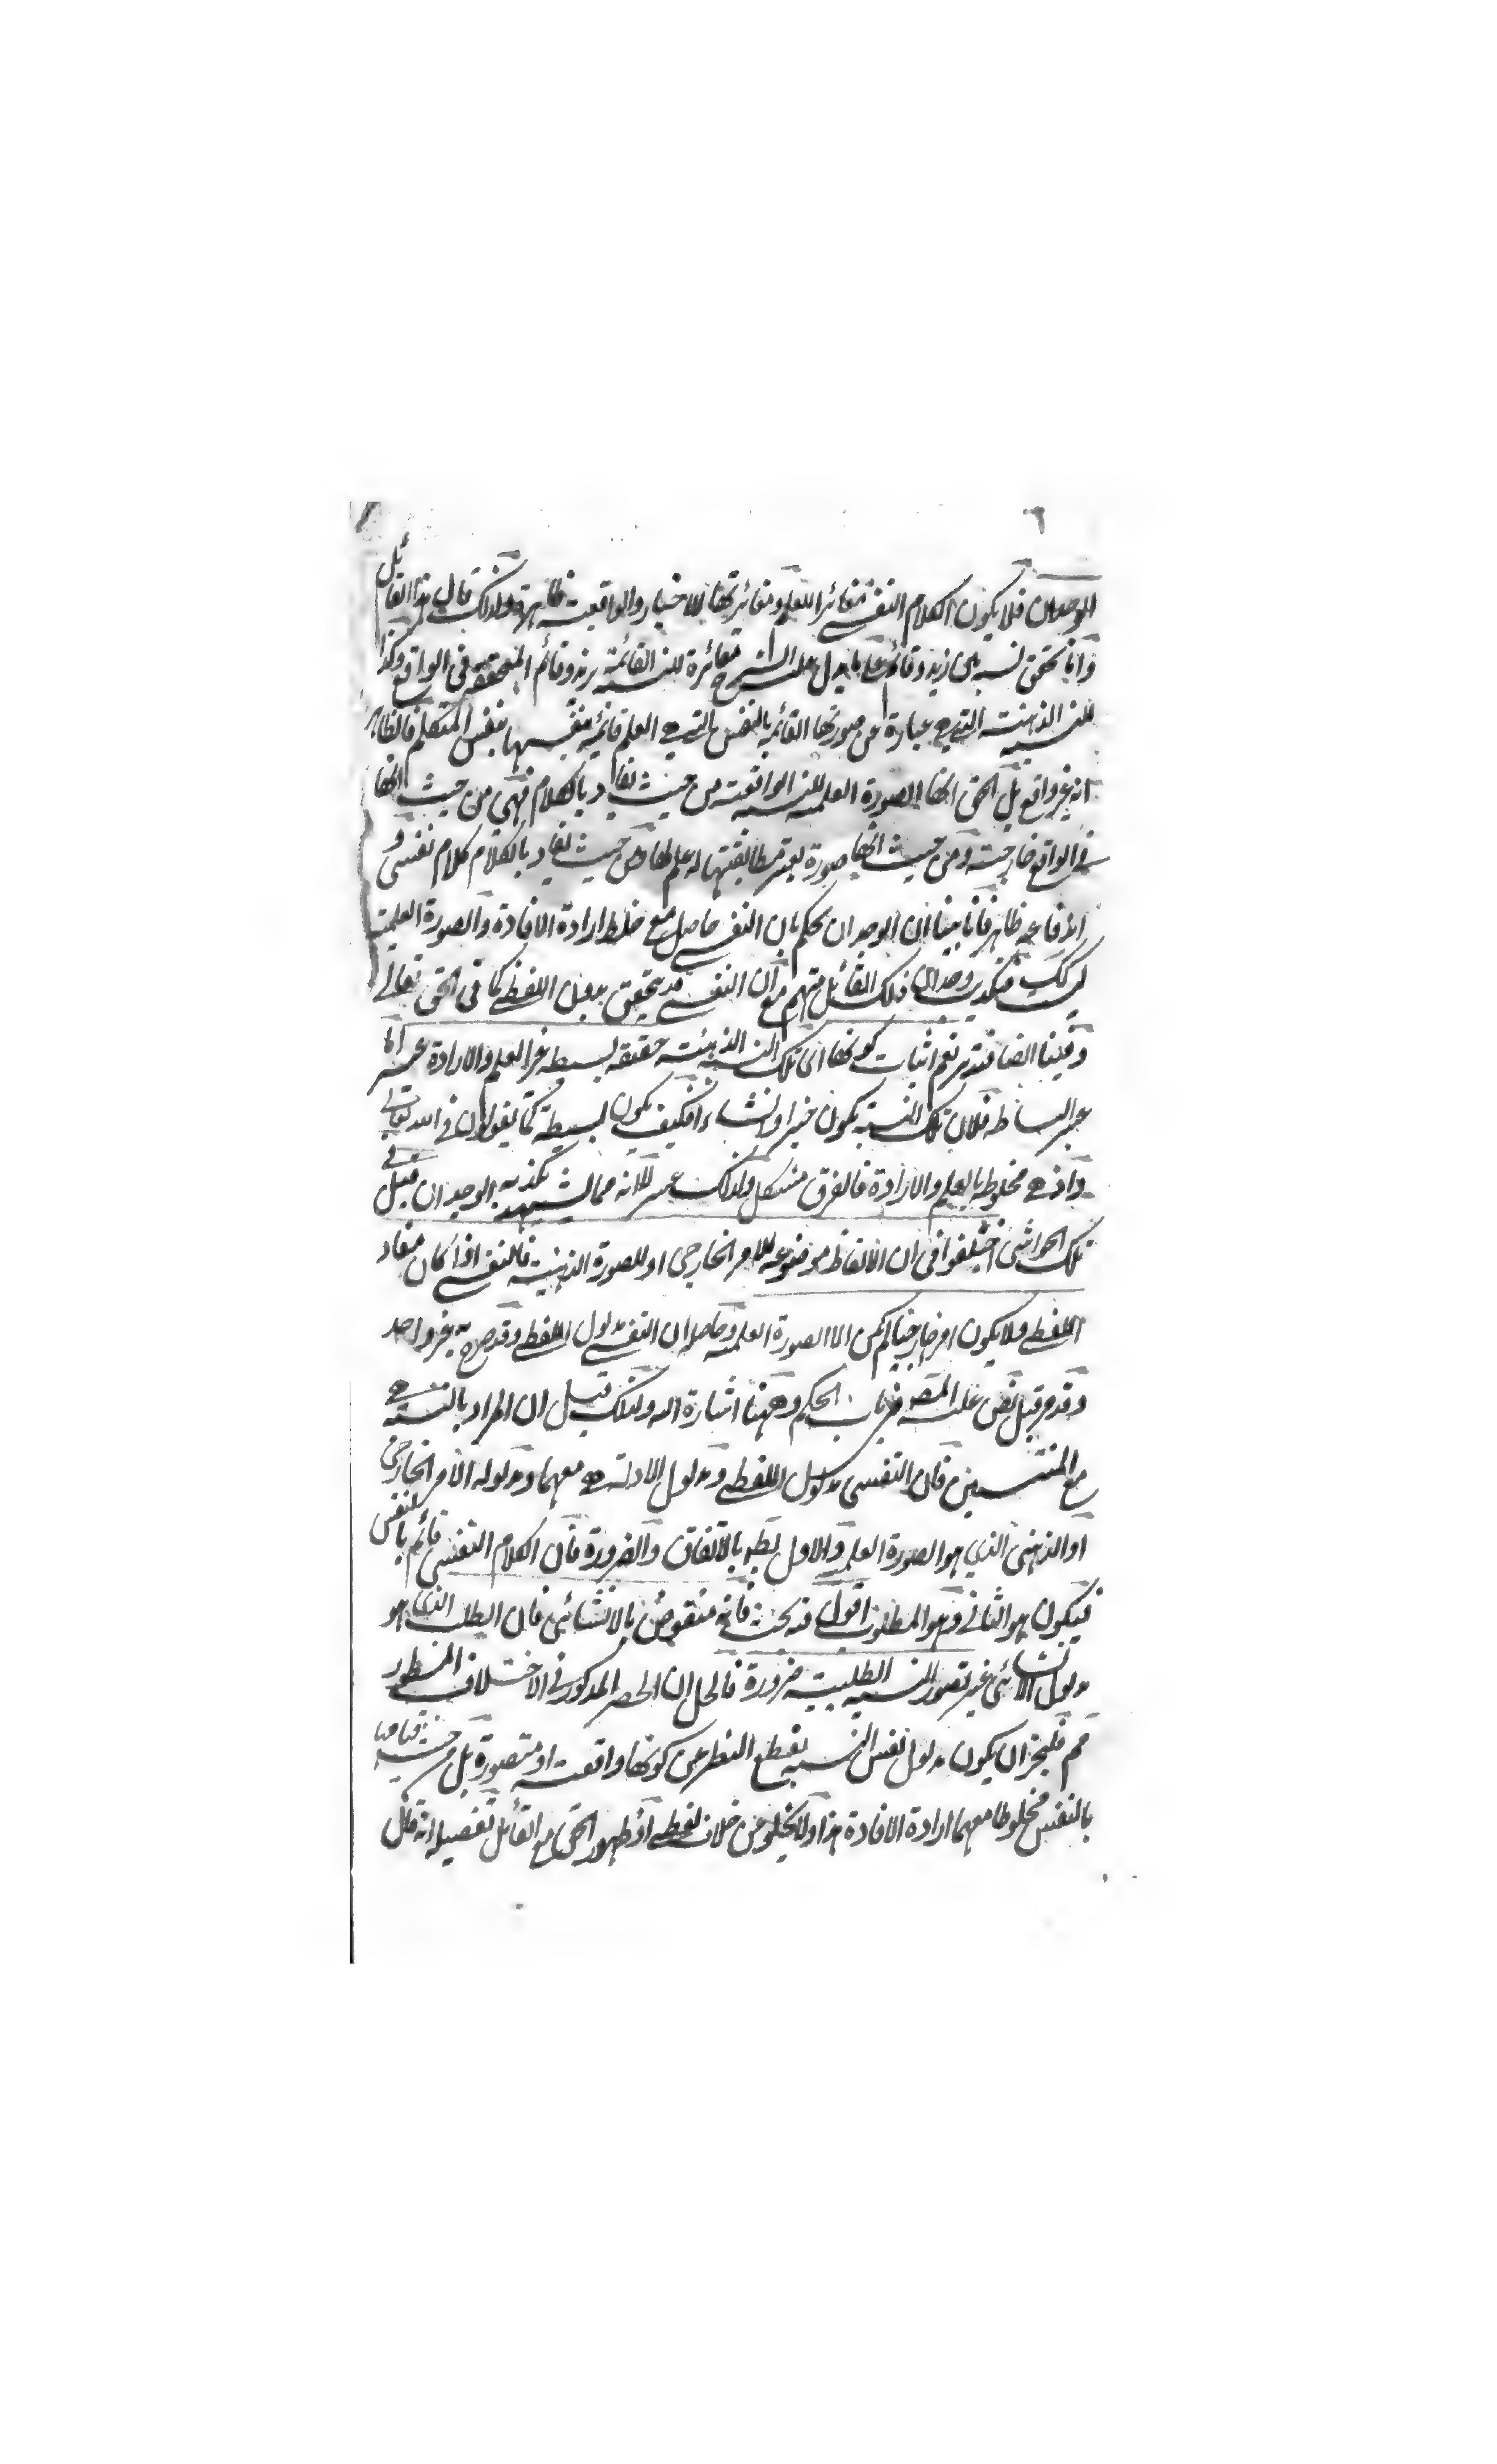 ٦
الوجدان فلا يكون الكلام النفسي مغائرا للعلم ومغائرتها للاخبار والواقعية ظاهرة ولذلك قال هذا القائل
وانا نتحقق نسبة بين زيد وقائم مغائرة للنسبة القائمة بزيد وقائم المتحققة في الواقع وكذا
للنسبة الذهنية التي هي عبارة عن صورتها القائمة بالنفس التي هي العلم قائمة بنفسها بنفس المتكلم فالظاهر
انه غير واقع بل الحق انها الصورة العلمية للنسبة الواقعية من حيث تفاد بالكلام فهي من حيث انها
في الواقع خارجية ومن حيث انها صورة يعتبر مطابقتها له علم لها ومن حيث تفاد بالكلام كلام نفسي و
اندفاعه ظاهر فانا بينا ان الوجدان يحكم بان النفسي حاصل مع خلط ارادة الافادة والصورة العلمية
ليست كذلك وجدان ذلك القائل متهم مع ان النفسي قد يتحقق بدون اللفظي كما في الحق تعالى
وفينا ايضا فتدبر نعم اثبات كونها اي تلك النسبة الذهنية حقيقة بسيطة غير العلم والارادة عسير اما
عسر البساطة فلان تلك النسبة تكون خبرا وانشاء فكيف يكون بسيطة كما يقولون في الله تعالى
واذ هي مخلوطة بالعلم والارادة فالفرق مشكل ولذلك عسر لا انه مما يشهد بكذبه الوجدان قيل في
تلك الحواشي اختلفوا في ان الالفاظ موضوعة للامر الخارجي او للصورة الذهنية فالنفسي اذا كان مفاد
اللفظي ولا يكون امرا خارجيا لم يكن الا الصورة العلمية وحاصله ان النفسي مدلول اللفظي وقد صرح به غير واحد
وقد مر قبل نص عليه المصـ في باب الحكم وههنا اشارة اليه ولذلك قيل ان المراد بالنسبة هي
مع المنتسبين فان النفسي مدلول اللفظي ومدلول الادلة هي معهما ومدلوله الامر الخارجي
او الذهني الذي هو الصورة العلمية والاول بط بالاتفاق والضرورة فان الكلام النفسي قائم بالنفس
فيكون هو الثاني وهو المطلوب اقول فيه بحث فانه منقوض بالانشائي فان الطلب الذي هو
مدلول الانشائي غير تصور النسبة الطلبية ضرورة فالحل ان الحصر المذكور في الاختلاف المنظور
مم فليجز ان يكون مدلول نفس النسبة بقطع النظر عن كونها واقعية او متصورة بل من حيث قيامها
بالنفس مخلوطا معهما ارادة الافادة هذا ولا يخلو عن خلاف لفظي اذ ظهور الحق مع القائل تفصيله انه قال